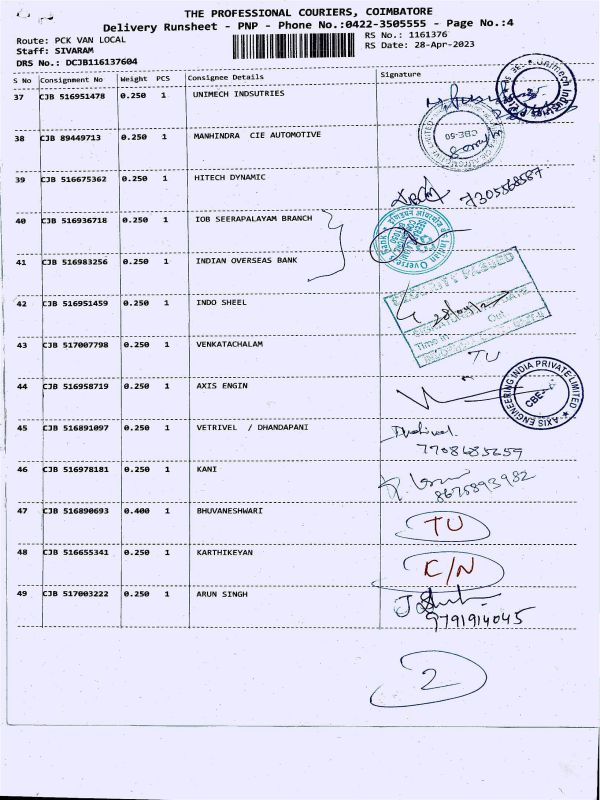 THE PROFESSIONAL COURIERS, COIMBATORE
Delivery Runsheet - PNP - Phone No.:0422-3505555 - Page No.:4
Route: PCK VAN LOCAL
RS No.: 1161376
Staff: SIVARAM
RS Date: 28-Apr-2023
DRS No.: DCJB116137604
S No Consignment No Weight PCS Consignee Details Signature
37 CJB 516951478 0.250 1 UNIMECH INDSUTRIES
38 CJB 89449713 0.250 1 MANHINDRA CIE AUTOMOTIVE
CBE-50
39 CJB 516675362 0.250 1 HITECH DYNAMIC
7305568587
40 CJB 516936718 0.250 1 IOB SEERAPALAYAM BRANCH
41 CJB 516983256 0.250 1 INDIAN OVERSEAS BANK
Indian Overseas Bank
42 CJB 516951459 0.250 1 INDO SHEEL
SECURITY PASSED
Time in Out
43 CJB 517007798 0.250 1 VENKATACHALAM TU
44 CJB 516958719 0.250 1 AXIS ENGIN
AXIS ENGINEERING INDIA PRIVATE LIMITED
CBE-
45 CJB 516891097 0.250 1 VETRIVEL / DHANDAPANI
7708685259
46 CJB 516978181 0.250 1 KANI
8675893982
47 CJB 516890693 0.400 1 BHUVANESHWARI TU
48 CJB 516655341 0.250 1 KARTHIKEYAN C/N
49 CJB 517003222 0.250 1 ARUN SINGH
9791914045
2